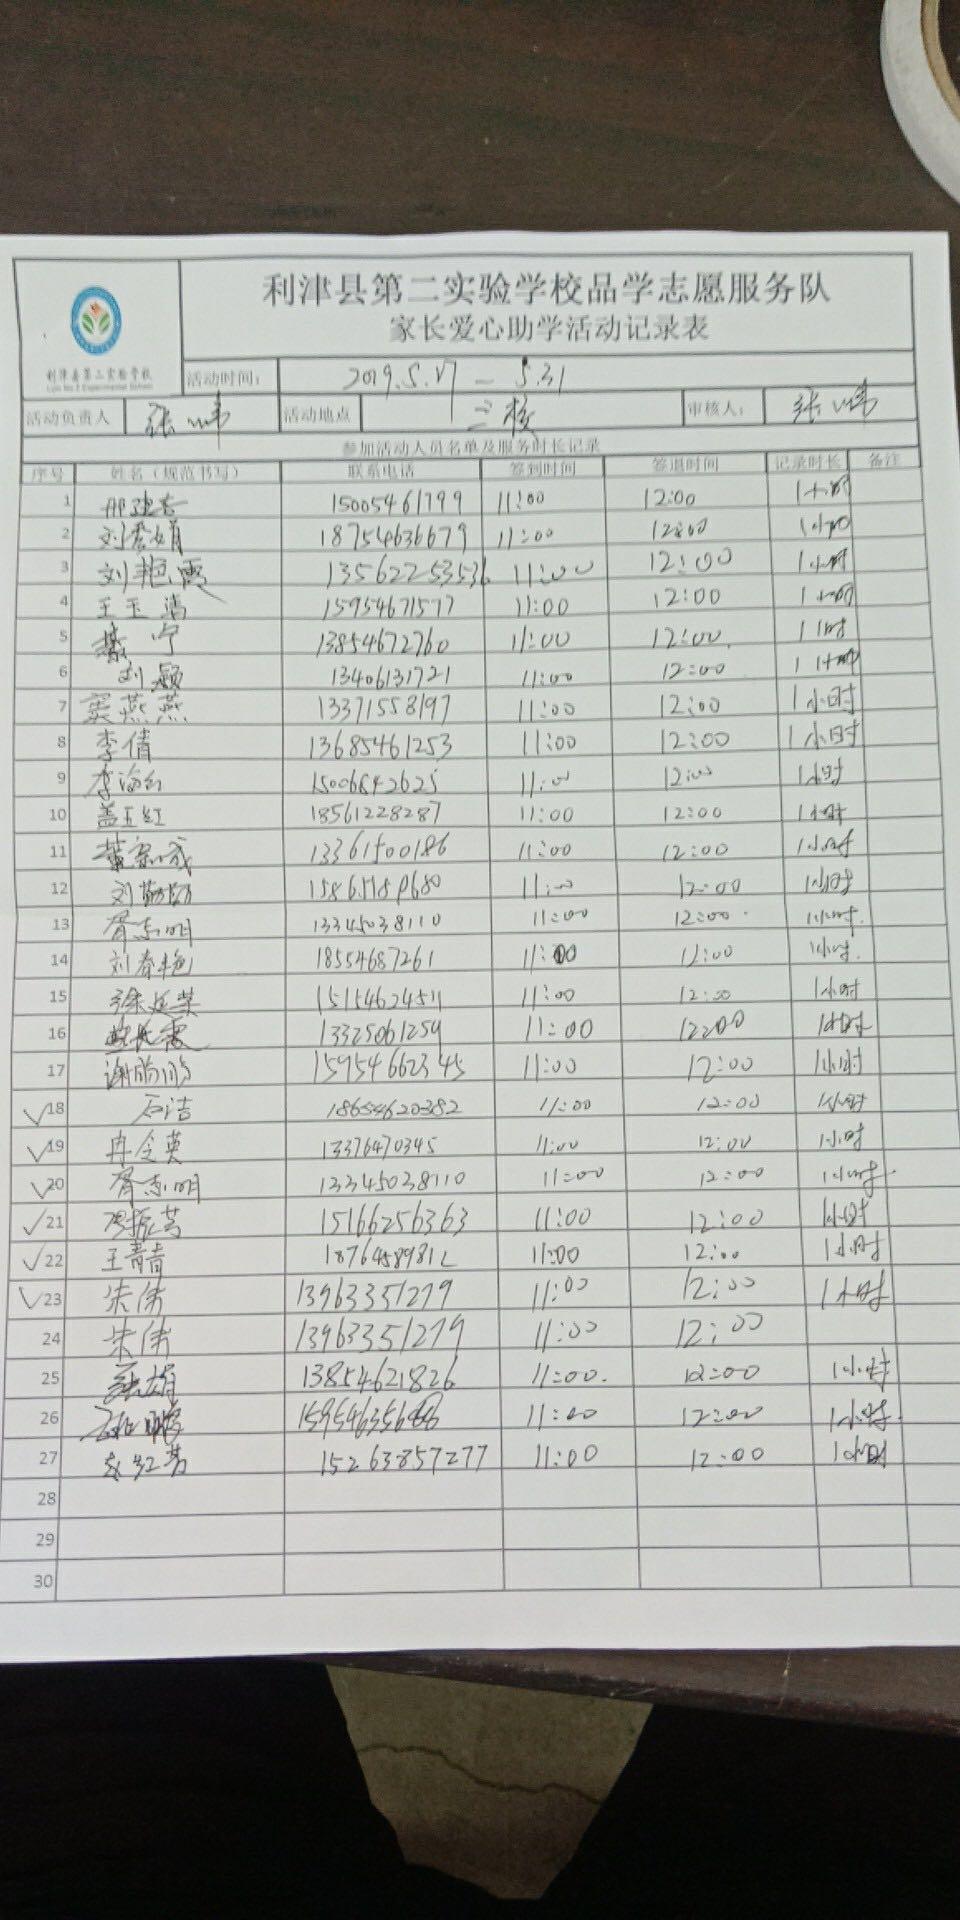 利津县第二实验学校品学志愿服务队
家长爱心助学活动记录表
利津县第二实验学校
活动时间： 2019.5.17 — 5.31
活动负责人 张 活动地点 三校 审核人： 张
参加活动人员名单及服务时长记录
序号 姓名（规范书写） 联系电话 签到时间 签退时间 记录时长 备注
1 15005461799 11:00 12:00 1小时
2 刘 18754636679 11:00 12:00 1小时
3 刘艳霞 11:00 12:00 1小时
4 王玉 15954671577 11:00 12:00 1小时
5 宁 13854672760 11:00 12:00 1时
6 刘颖 13406131721 11:00 12:00 1小时
7 窦燕燕 13371558197 11:00 12:00 1小时
8 李倩 13685461253 11:00 12:00 1小时
9 李海红 15006842625 11:00 12:00 1小时
10 盖玉红 18561228287 11:00 12:00 1小时
11 13361500186 11:00 12:00 1小时
12 刘 11:00 12:00 1小时
13 胥志明 13345038110 11:00 12:00 1小时
14 刘春艳 18554687261 11:00 12:00 1小时
15 徐廷荣 15154624511 11:00 12:00 1小时
16 13325061259 11:00 1小时
17 谢 15954662345 11:00 12:00 1小时
√18 石洁 18654620382 11:00 12:00 1小时
√19 冉令英 13376470345 11:00 12:00 1小时
√20 胥志明 13345038110 11:00 12:00 1小时
√21 15166256363 11:00 12:00 1小时
√22 王青青 1876458981 11:00 12:00 1小时
√23 朱伟 13963351279 11:00 12:00 1小时
24 朱伟 13963351279 11:00 12:00
25 13854621826 11:00 12:00 1小时
26 11:00 12:00 1小时
27 15263857277 11:00 12:00 1小时
28
29
30